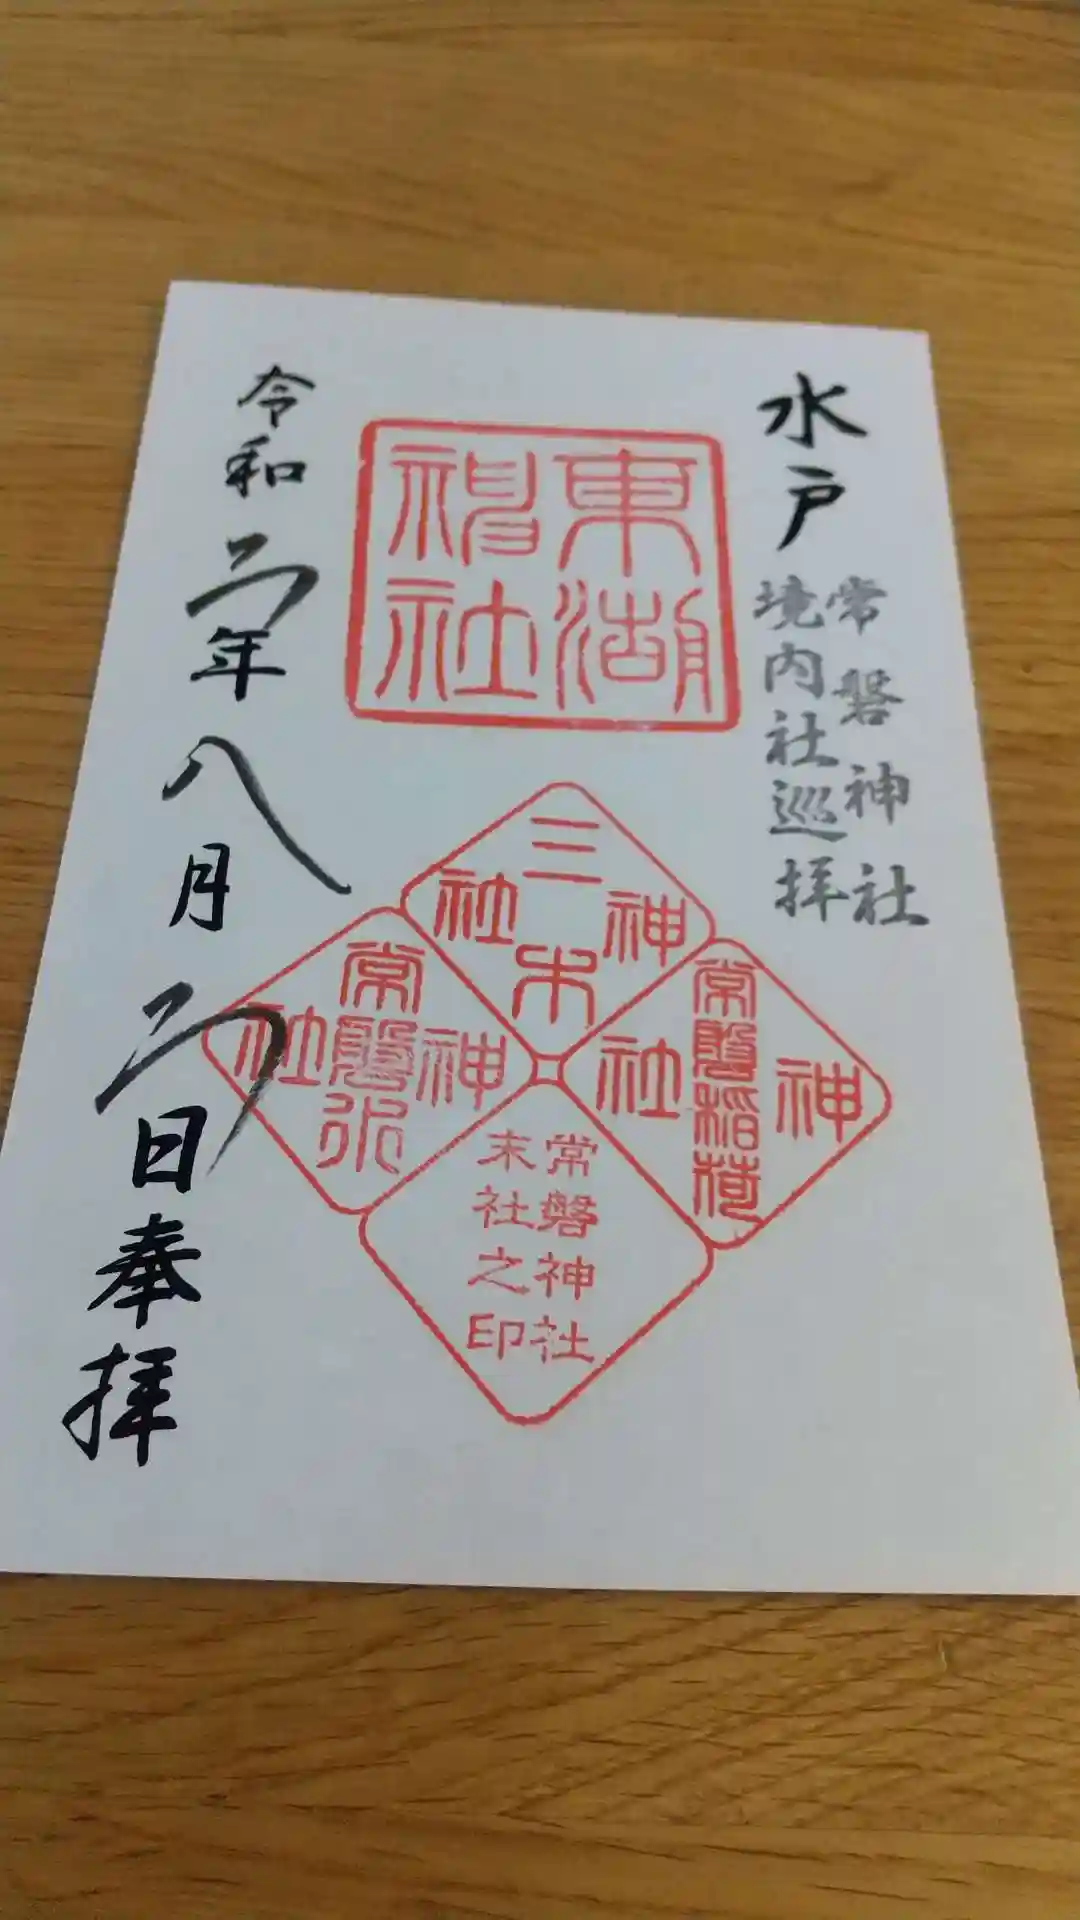 水戸
常磐神社
境内社巡拝
東湖
神社
三木
神社
常磐稲荷
神社
常磐
神社
常磐神社
末社之印
令和二年八月二日奉拝